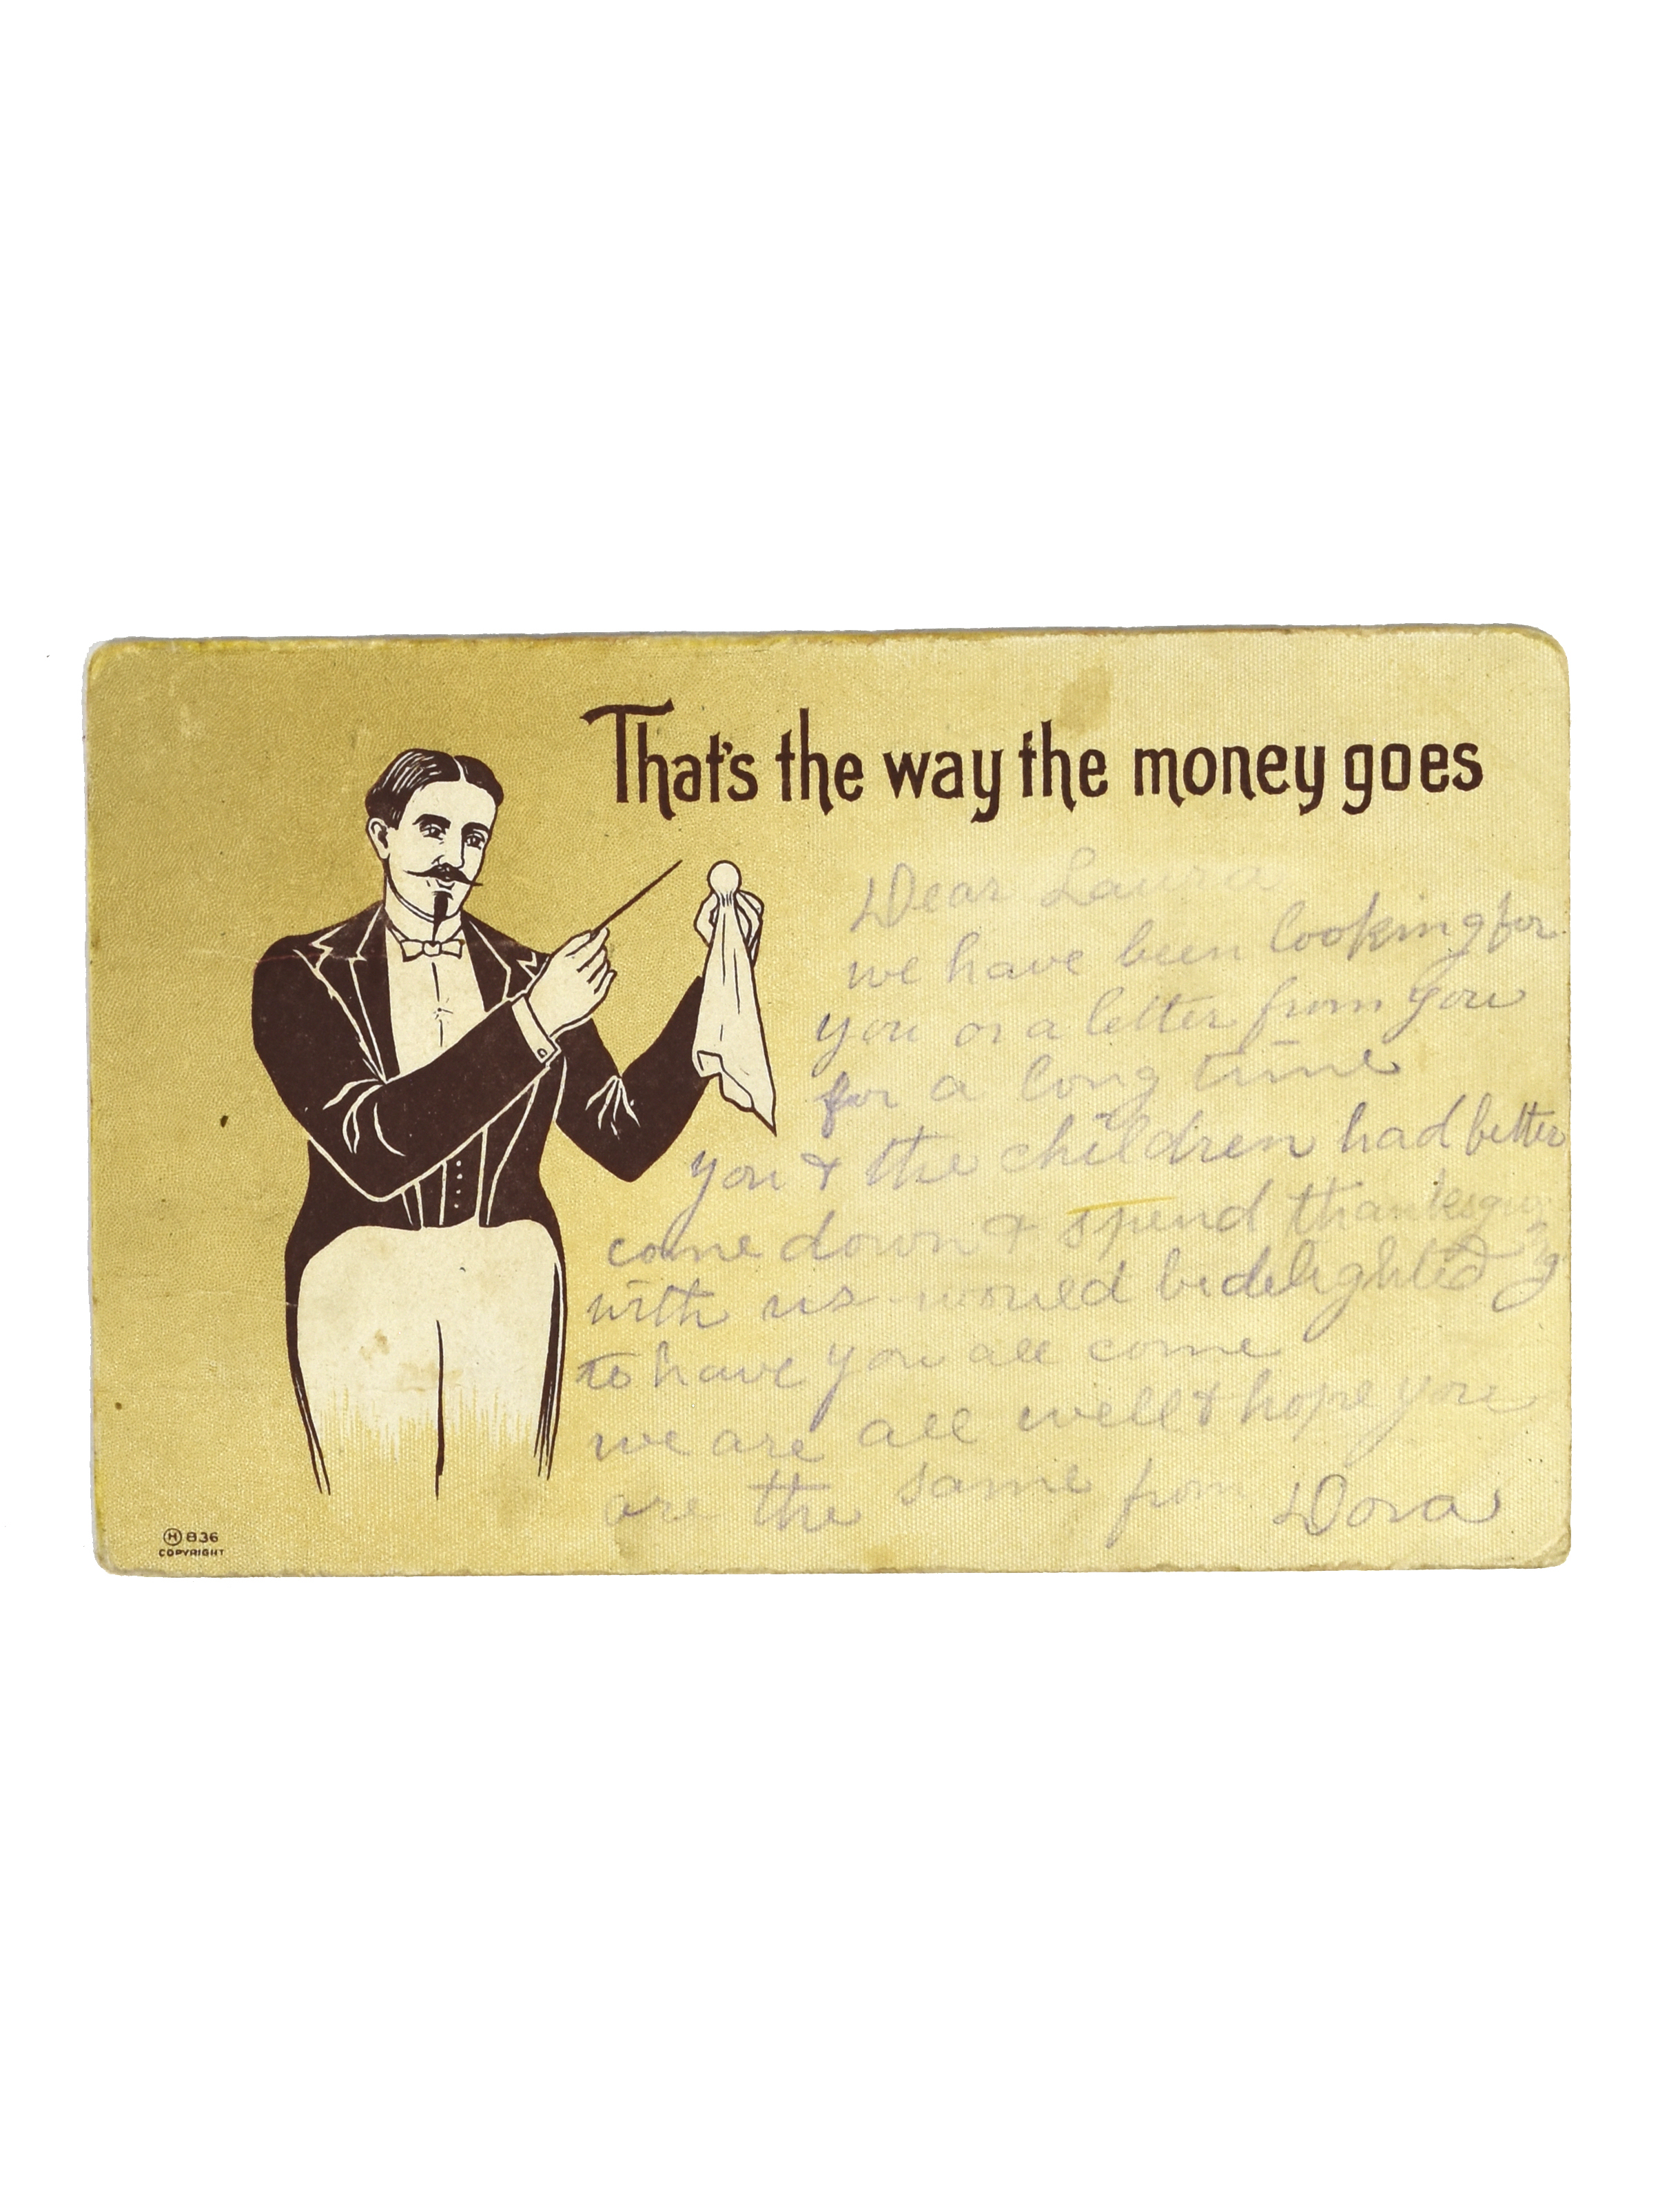 That's the way the money goes
Dear Laura
we have been looking for
you or a letter from you
for a long time
you & the children had better
come down & spend thanksgiving
with us would be delighted
to have you all come
we are all well & hope you
are the same from Dora
H 836
COPYRIGHT